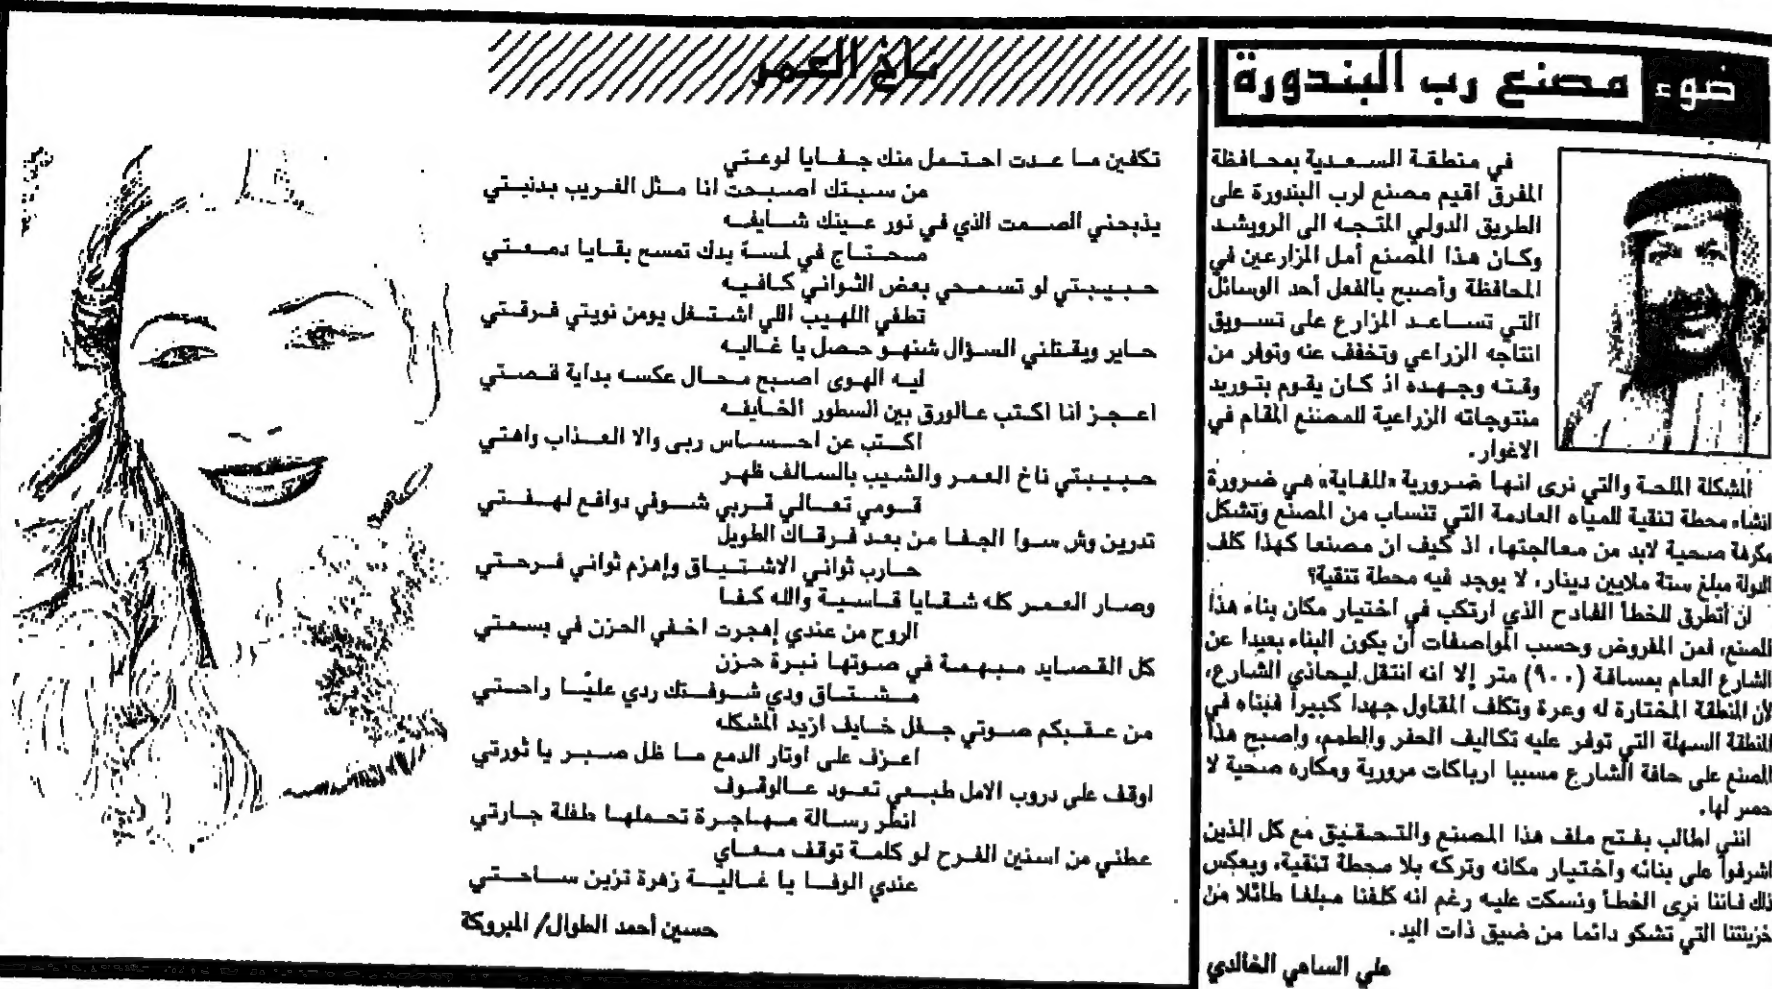 ضوء
مصنع رب البندورة
في منطقة السعدية بمحافظة
المفرق اقيم مصنع لرب البندورة على
الطريق الدولي المتجه الى الرويشد
وكان هذا المصنع أمل المزارعين في
المحافظة وأصبح بالفعل أحد الوسائل
التي تساعد المزارع على تسويق
انتاجه الزراعي وتخفف عنه وتوفر من
وقته وجهده اذ كان يقوم بتوريد
منتوجاته الزراعية للمصنع المقام في
الاغوار.
المشكلة الملحة والتي نرى انها ضرورية «للغاية» هي ضرورة
انشاء محطة تنقية للمياه العادمة التي تنساب من المصنع وتشكل
مكرهة صحية لابد من معالجتها، اذ كيف ان مصنعا كهذا كلف
الدولة مبلغ ستة ملايين دينار، لا يوجد فيه محطة تنقية؟
لن أتطرق للخطأ الفادح الذي ارتكب في اختيار مكان بناء هذا
المصنع، فمن المفروض وحسب المواصفات أن يكون البناء بعيدا عن
الشارع العام بمسافة (٩٠٠) متر إلا انه انتقل ليحاذي الشارع،
لأن المنطقة المختارة له وعرة وتكلف المقاول جهدا كبيرا فبناه في
المنطقة السهلة التي توفر عليه تكاليف الحفر والطمم، واصبح هذا
المصنع على حافة الشارع مسببا ارباكات مرورية ومكاره صحية لا
حصر لها.
انني اطالب بفتح ملف هذا المصنع والتحقيق مع كل الذين
اشرفوا على بنائه واختيار مكانه وتركه بلا محطة تنقية، وبعكس
ذلك فاننا نرى الخطأ ونسكت عليه رغم انه كلفنا مبلغا طائلا من
خزينتنا التي تشكو دائما من ضيق ذات اليد.
علي الساهي الخالدي
ناخ العمر
تكفين ما عدت احتمل منك جفايا لوعتي
من سبتك اصبحت انا مثل الغريب بدنيتي
يذبحني الصمت الذي في نور عينك شايفه
محتاج في لمسة يدك تمسح بقايا دمعتي
حبيبتي لو تسمحي بعض الثواني كافيه
تطفي اللهيب اللي اشتغل يومن نويتي فرقتي
حاير ويقتلني السؤال شنهو حصل يا غاليه
ليه الهوى اصبح محال عكسه بداية قصتي
اعجز انا اكتب عالورق بين السطور الخايفه
اكتب عن احساس ربى والا العذاب واهتي
حبيبتي ناخ العمر والشيب بالسالف ظهر
قومي تعالي قربي شوفي دوافع لهفتي
تدرين وش سوا الجفا من بعد فرقاك الطويل
حارب ثواني الاشتياق وإهزم ثواني فرحتي
وصار العمر كله شقايا قاسية والله كفا
الروح من عندي إهجرت اخفي الحزن في بسمتي
كل القصايد مبهمة في صوتها نبرة حزن
مشتاق ودي شوفتك ردي عليّا راحتي
من عقبكم صوتي جفل خايف ازيد المشكله
اعزف على اوتار الدمع ما ظل صبر يا ثورتي
اوقف على دروب الامل طبعي تعود عالوقوف
انطر رسالة مهاجرة تحملها طفلة جارتي
عطني من اسنين الفرح لو كلمة توقف معاي
عندي الوفا يا غاليّة زهرة تزين ساحتي
حسين أحمد الطوال/ المبروكة